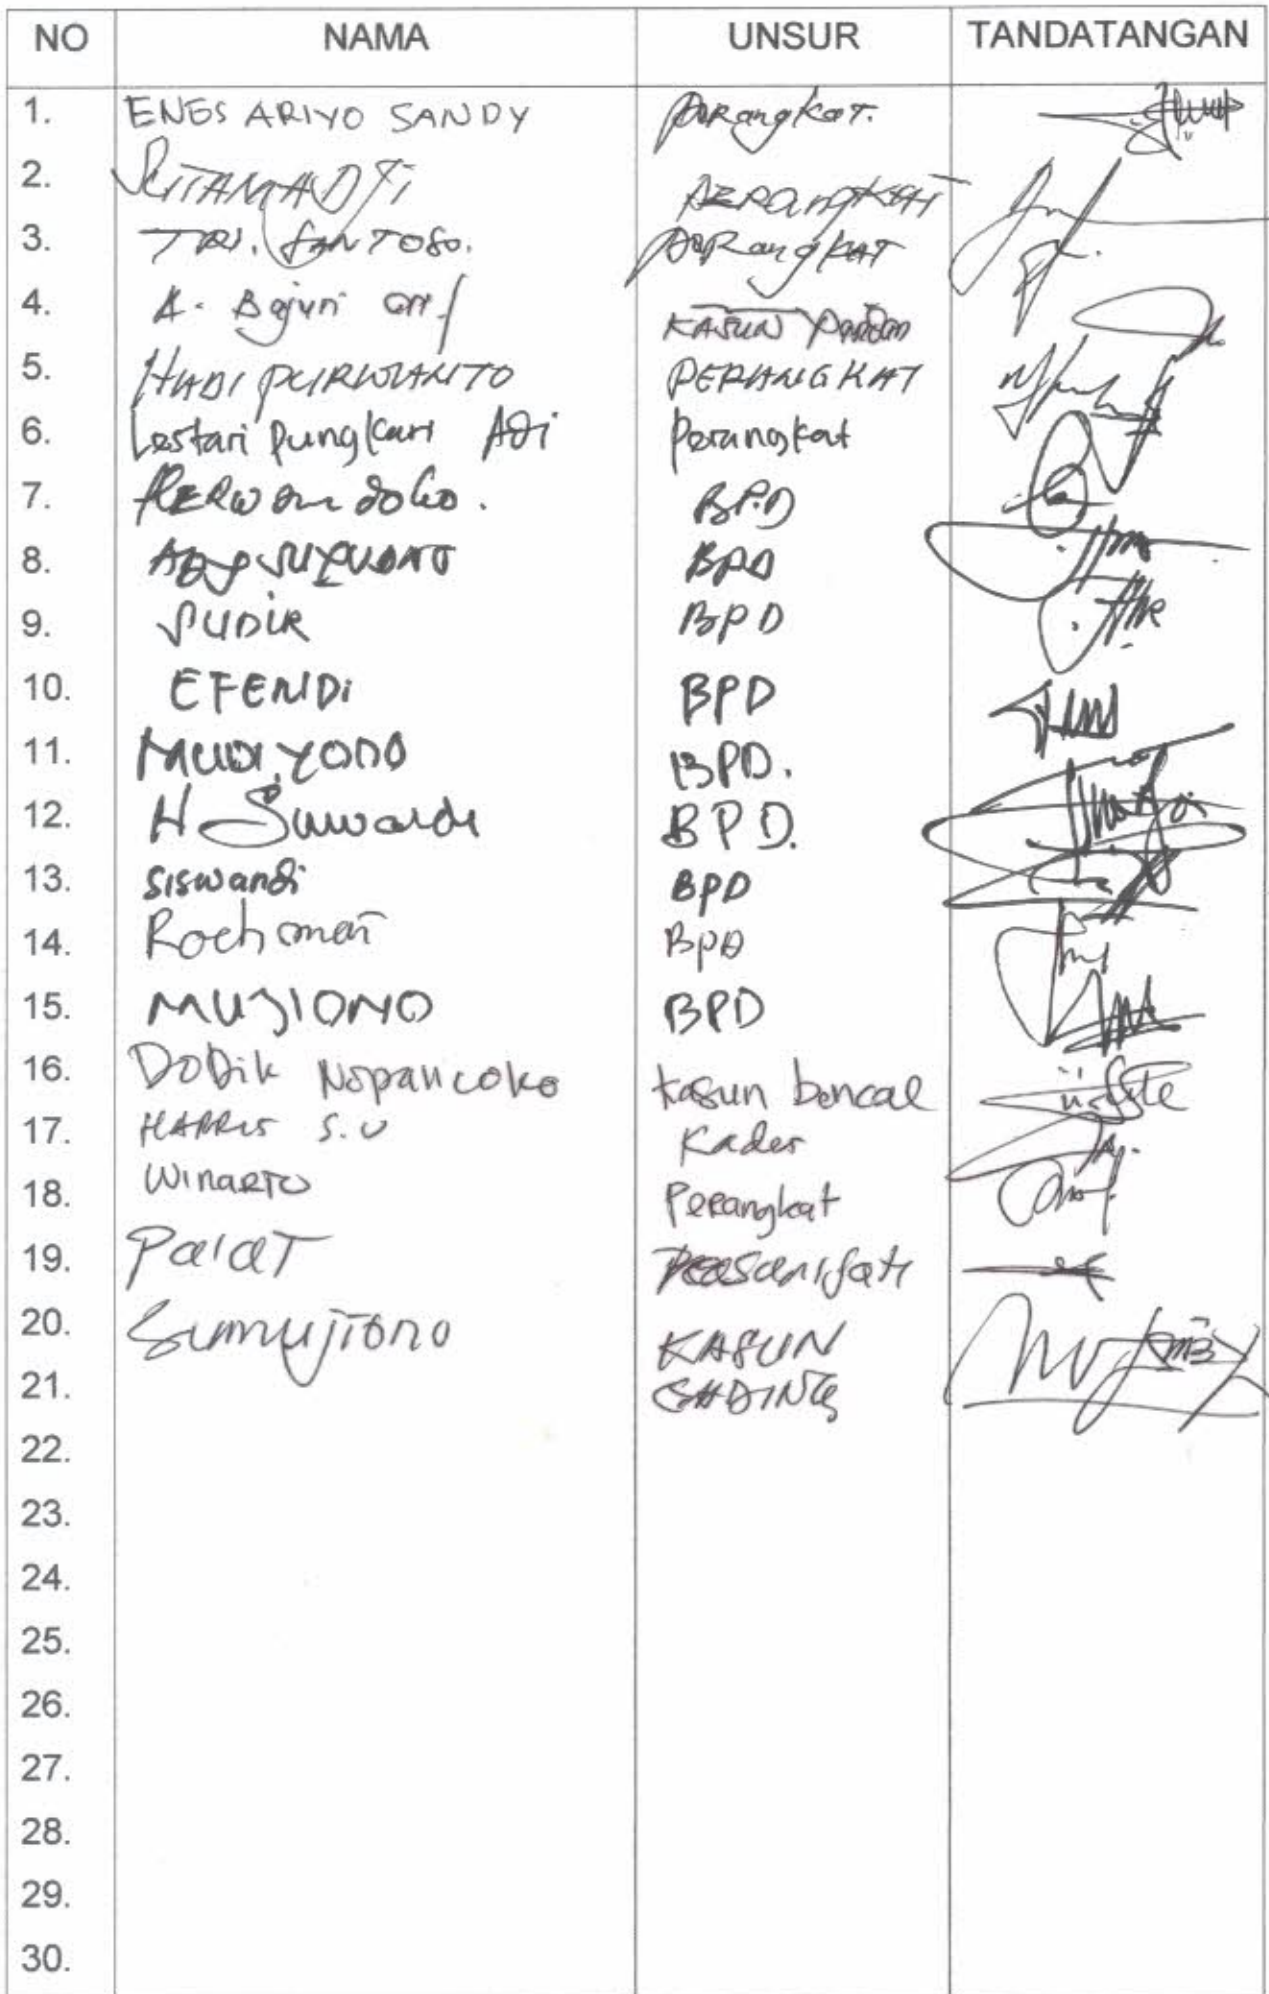 NO NAMA UNSUR TANDATANGAN
1. ENES ARIYO SANDY Perangkat.
2. PERangKAT
3. TRI. SANTOSO. PERangkAT
4. A. Bajuri arif KASUN
5. HADI PURWANTO PERANGKAT
6. Lestari Pungkari Adi Perangkat
7. BP.D
8. BPD
9. SUDIR BPD
10. EFENDi BPD
11. MUDIYONO BPD.
12. H Suwardi BPD.
13. Siswandi BPD
14. Rochmat BPD
15. MUJIONO BPD
16. DoDik Nopancoko kasun bencal
17. HARRIS S.U Kader
18. WinaRTO Perangkat
19. PaiaT
20. Sumujiono KASUN
21. GADING
22.
23.
24.
25.
26.
27.
28.
29.
30.